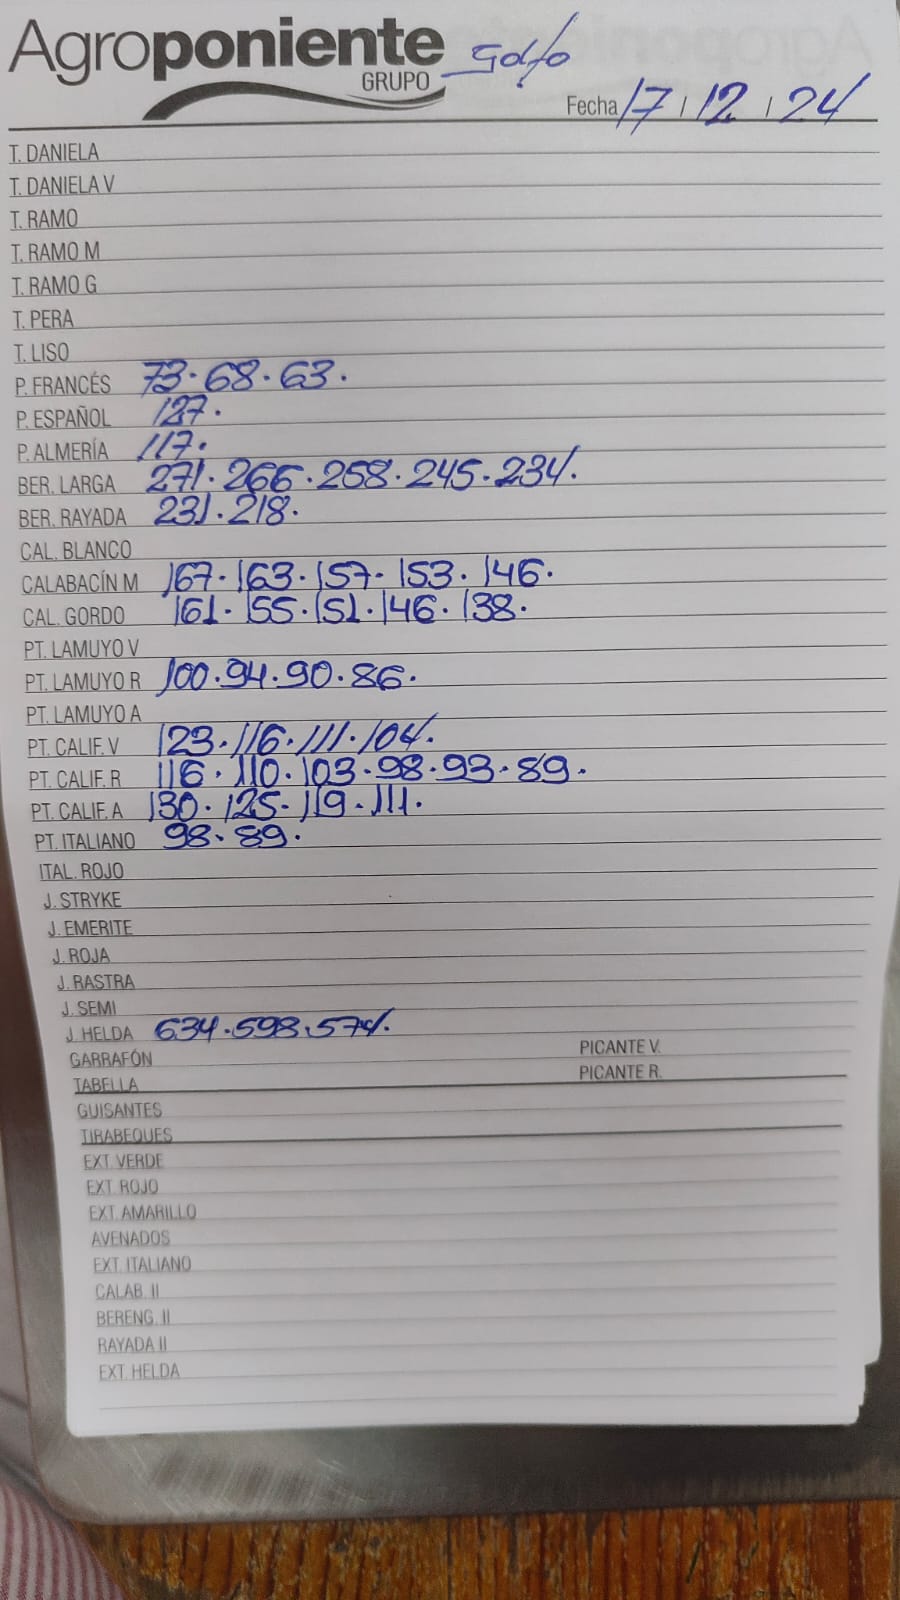 Agroponiente Golfo
GRUPO
Fecha 17 / 12 / 24
T. DANIELA
T. DANIELA V
T. RAMO
T. RAMO M
T. RAMO G
T. PERA
T. LISO
P. FRANCÉS 73. 68. 63.
P. ESPAÑOL 127.
P. ALMERÍA 117.
BER. LARGA 271. 266. 258. 245. 234.
BER. RAYADA 231. 218.
CAL. BLANCO
CALABACÍN M 167. 163. 157. 153. 146.
CAL. GORDO 161. 155. 151. 146. 138.
PT. LAMUYO V
PT. LAMUYO R 100. 94. 90. 86.
PT. LAMUYO A
PT. CALIF. V 123. 116. 111. 104.
PT. CALIF. R 116. 110. 103. 98. 93. 89.
PT. CALIF. A 130. 125. 119. 111.
PT. ITALIANO 98. 89.
ITAL. ROJO
J. STRYKE
J. EMERITE
J. ROJA
J. RASTRA
J. SEMI
J. HELDA 634. 598. 574.
GARRAFÓN PICANTE V.
TABELLA PICANTE R.
GUISANTES
TIRABEQUES
EXT. VERDE
EXT. ROJO
EXT. AMARILLO
AVENADOS
EXT. ITALIANO
CALAB. II
BERENG. II
RAYADA II
EXT. HELDA